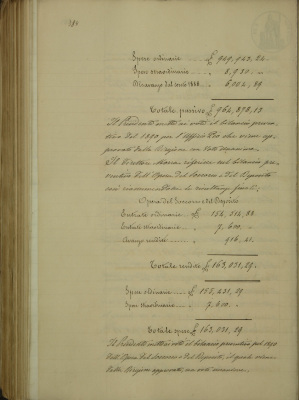 Spese ordinarie £ 949,043,24
Spese straordinarie " 8,930 "
Disavanzo del 1888
Totale passivo £ 962,878,13
Il Presidente mette ai voti il bilancio preven
tivo del 1890 per l'Ufficio Pio che viene ap
provato dalla Direzione con voto unanime.
Il Direttore riferisce sul bilancio pre
ventivo dell'Opera del Soccorso e del Deposito
così riassumendone le risultanze finali:
Opera del Soccorso e del Deposito
Entrate ordinarie £ 154,514,88
Entrate straordinarie " 7,600 "
Avanzo residui " 916,41
Totale residui £ 163,031,29
Spese ordinarie £ 155,431,29
Spese straordinarie " 7,600 "
Totale spese £ 163,031,29
Il Presidente mette ai voti il bilancio preventivo pel 1890
dell'Opera del Soccorso e del Deposito, il quale viene
dalla Direzione approvato, con voto unanime.